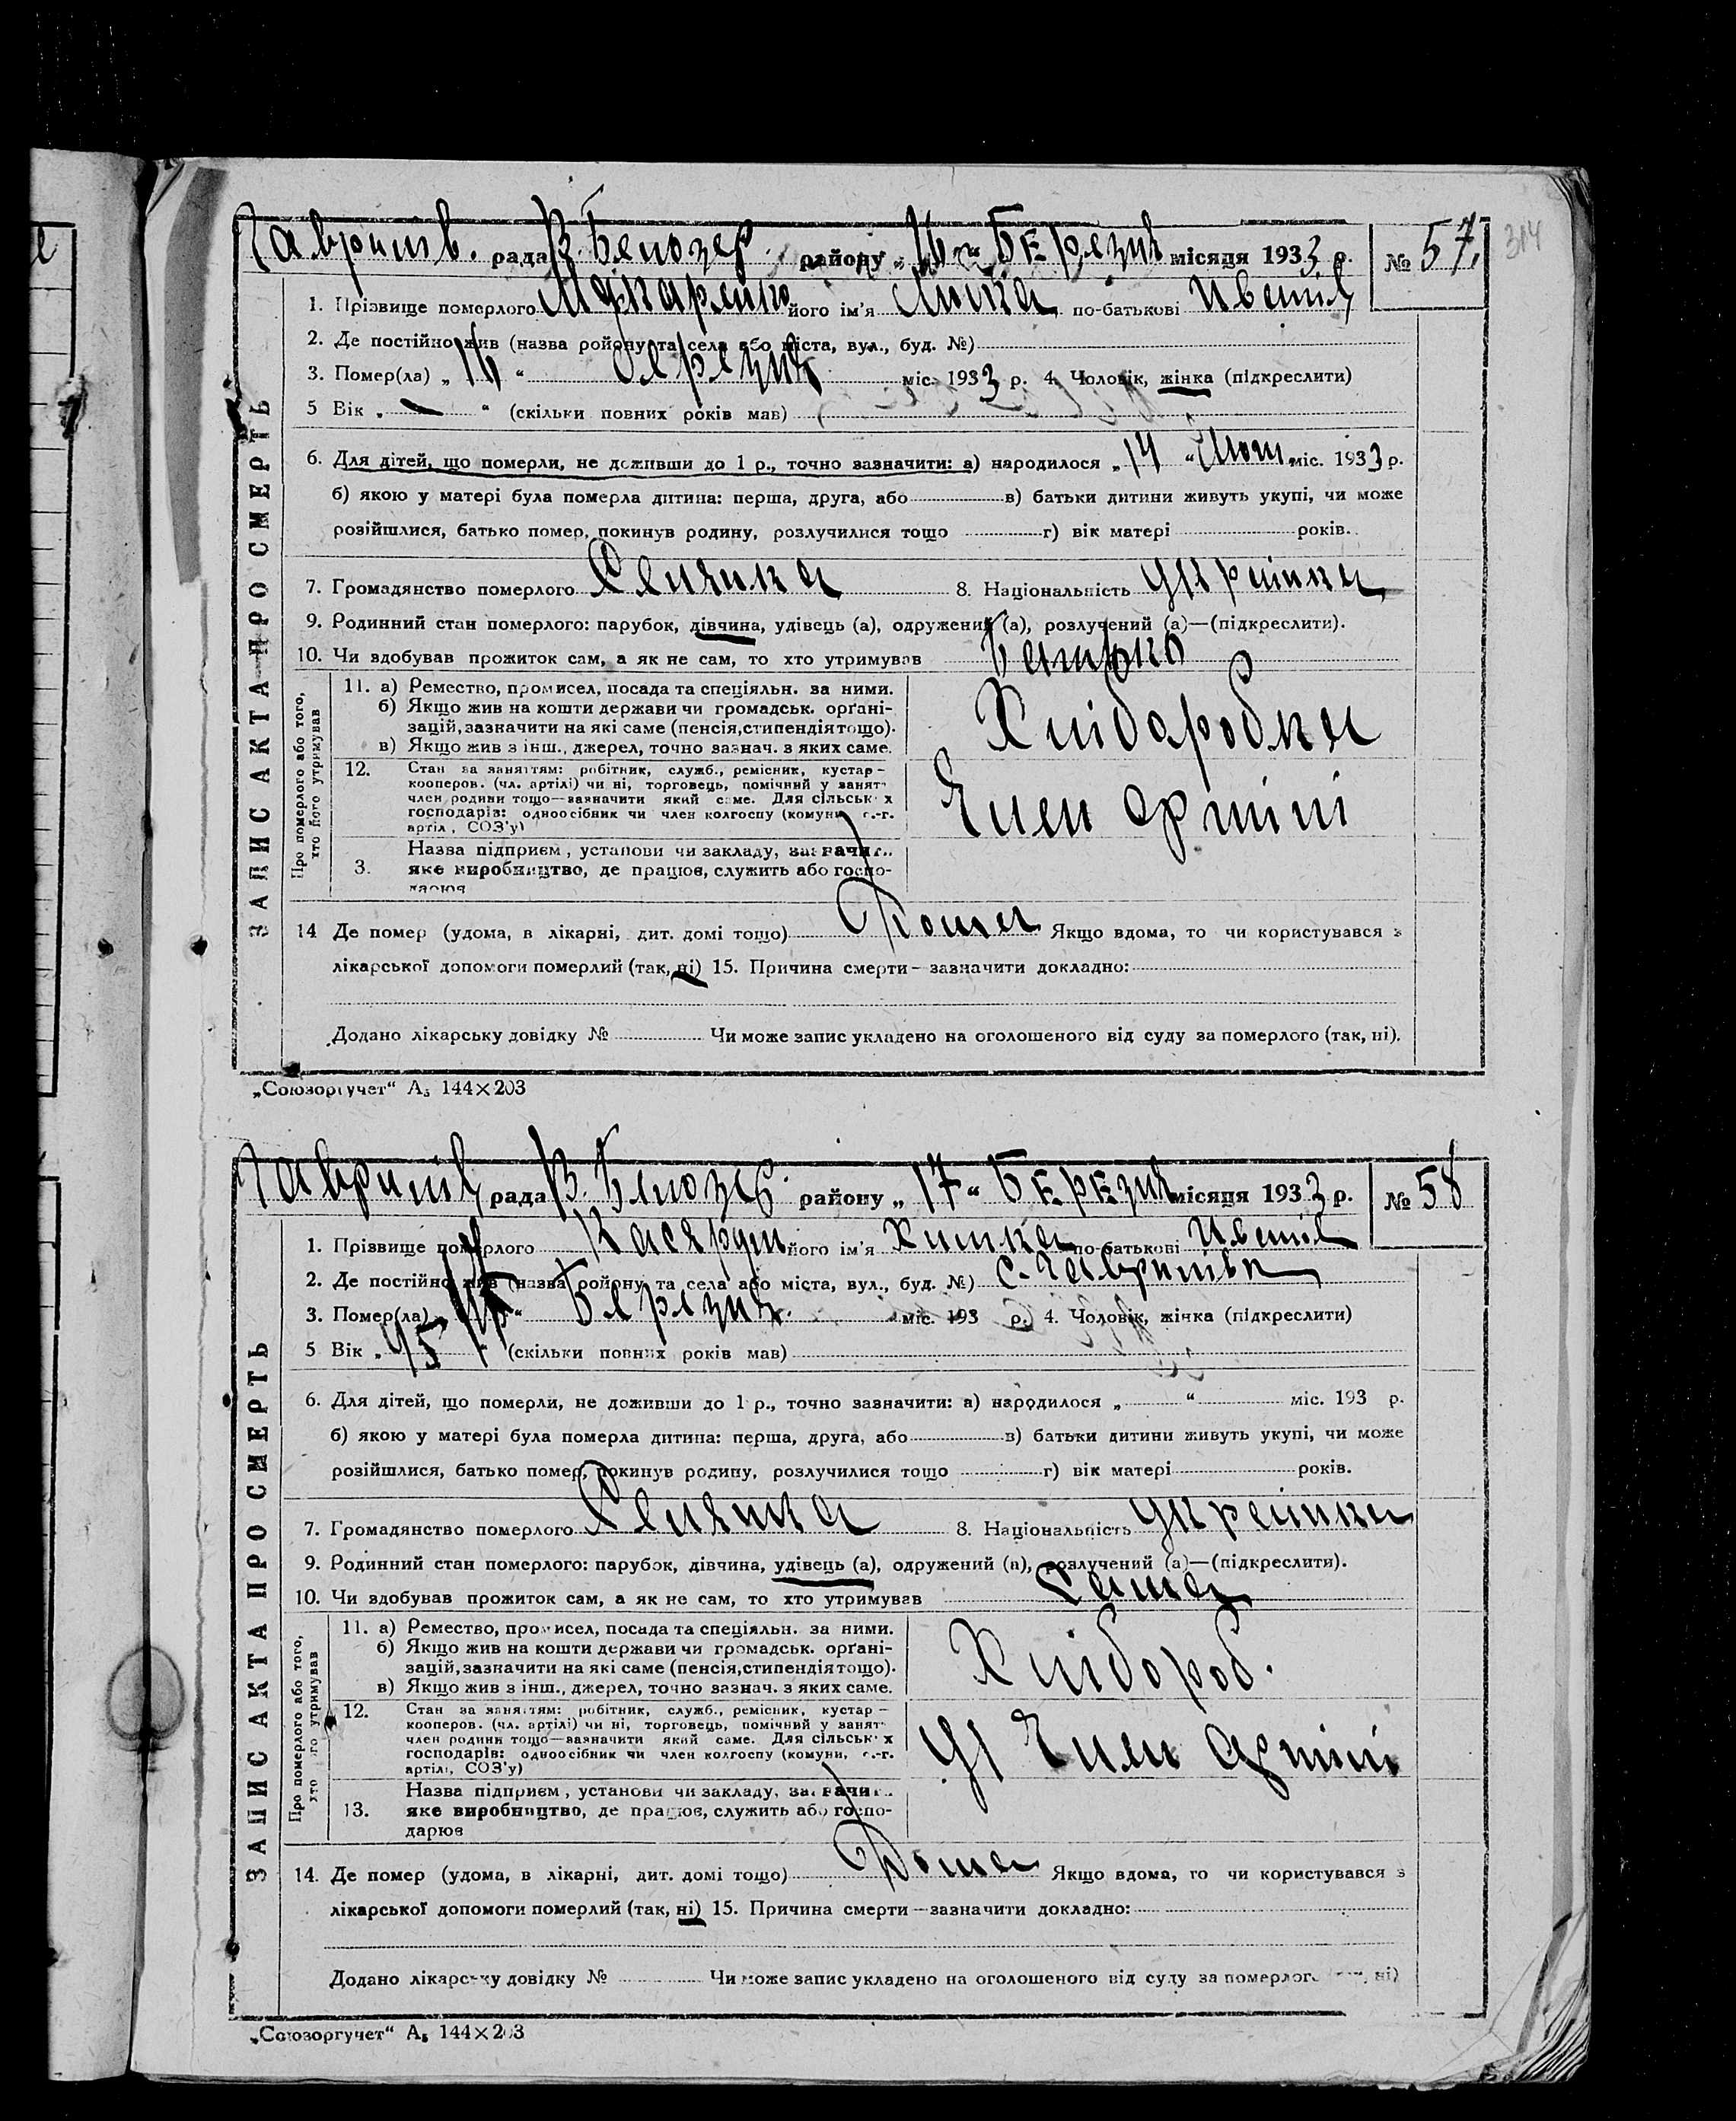 Гавринів. рада В. Белозер. району „16“ Березня місяця 1933 р. № 57.
314
1. Прізвище померлого Макаренко його ім'я по-батькові Иванів
2. Де постійно жив (назва ройону та села або міста, вул., буд. №)
3. Помер(ла) „16“ березня міс. 1933 р. 4. Чоловік, жінка (підкреслити)
5 Вік „ — “ (скільки повних років мав)
6. Для дітей, що померли, не доживши до 1 р., точно зазначити: а) народилося „14“ Лют. міс. 1933 р.
б) якою у матері була померла дитина: перша, друга, або в) батьки дитини живуть укупі, чи може
розійшлися, батько помер, покинув родину, розлучилися тощо г) вік матері років.
7. Громадянство померлого Селянка 8. Національність Українка
9. Родинний стан померлого: парубок, дівчина, удівець (а), одружений (а), розлучений (а)—(підкреслити).
10. Чи здобував прожиток сам, а як не сам, то хто утримував Батько
ЗАПИС АКТА ПРО СМЕРТЬ
Про померлого або того, хто його утримував
11. а) Ремество, промисел, посада та спеціяльн. за ними.
б) Якщо жив на кошти держави чи громадськ. орґані-
зацій, зазначити на які саме (пенсія, стипендія тощо).
в) Якщо жив з інш., джерел, точно зазнач. з яких саме.
Хліборобка
12. Стан за заняттям: робітник, служб., ремісник, кустар –
кооперов. (чл. артілі) чи ні, торговець, помічний у занят
член родини тощо—зазначити який саме. Для сільськ х
господарів: одноосібник чи член колгоспу (комуни с.-г.
артіл, СОЗ'у)
Член артілі
3. Назва підприєм, установи чи закладу, зазначи..
яке виробництво, де працює, служить або госпо-
дарює
14 Де помер (удома, в лікарні, дит. домі тощо) Дома Якщо вдома, то чи користувався з
лікарської допомоги померлий (так, ні) 15. Причина смерти – зазначити докладно:
Додано лікарську довідку № Чи може запис укладено на оголошеного від суду за померлого (так, ні).
„Союзоргучет“ А5 144×203
Гавринів рада В. Белозер. району „17“ Березня місяця 1933 р. № 58
1. Прізвище померлого його ім'я по-батькові Иванів
2. Де постійно жив (назва ройону та села або міста, вул., буд. №) с. Гавринівка
3. Помер(ла) Березня. міс. 193 р. 4. Чоловік, жінка (підкреслити)
5 Вік „45 (скільки повних років мав)
6. Для дітей, що померли, не доживши до 1 р., точно зазначити: а) народилося „ “ міс. 193 р.
б) якою у матері була померла дитина: перша, друга, або в) батьки дитини живуть укупі, чи може
розійшлися, батько помер, покинув родину, розлучилися тощо г) вік матері років.
7. Громадянство померлого Селянка 8. Національність Українка
9. Родинний стан померлого: парубок, дівчина, удівець (а), одружений (а), розлучений (а)—(підкреслити).
10. Чи здобував прожиток сам, а як не сам, то хто утримував Сама
ЗАПИС АКТА ПРО СМЕРТЬ
Про померлого або того, хто його утримував
11. а) Ремество, промисел, посада та спеціяльн. за ними.
б) Якщо жив на кошти держави чи громадськ. орґані-
зацій, зазначити на які саме (пенсія, стипендія тощо).
в) Якщо жив з інш., джерел, точно зазнач. з яких саме.
Хлібороб.
12. Стан за заняттям: робітник, служб., ремісник, кустар –
кооперов. (чл. артілі) чи ні, торговець, помічний у занят
член родини тощо—зазначити який саме. Для сільськ х
господарів: одноосібник чи член колгоспу (комуни, с.-г.
артілі, СОЗ'у)
Член артілі
13. Назва підприєм, установи чи закладу, зазначи..
яке виробництво, де працює, служить або госпо-
дарює
14. Де помер (удома, в лікарні, дит. домі тощо) Дома Якщо вдома, то чи користувався з
лікарської допомоги померлий (так, ні) 15. Причина смерти – зазначити докладно:
Додано лікарську довідку № Чи може запис укладено на оголошеного від суду за померлого ні)
„Союзоргучет“ А5 144×203